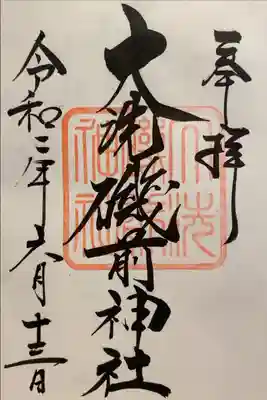 奉拝
大洗磯前神社
令和二年六月十三日